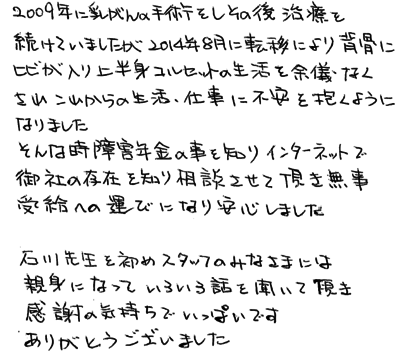 2009年に乳がんの手術をしその後治療を
続けていましたが2014年8月に転移により背骨に
ヒビが入り上半身コルセットの生活を余儀なく
され これからの生活、仕事に不安を抱くように
なりました
そんな時障害年金の事を知りインターネットで
御社の存在を知り相談させて頂き無事
受給への運びになり安心しました
石川先生を初めスタッフのみなさまには
親身になっていろいろ話を聞いて頂き
感謝の気持ちでいっぱいです
ありがとうございました